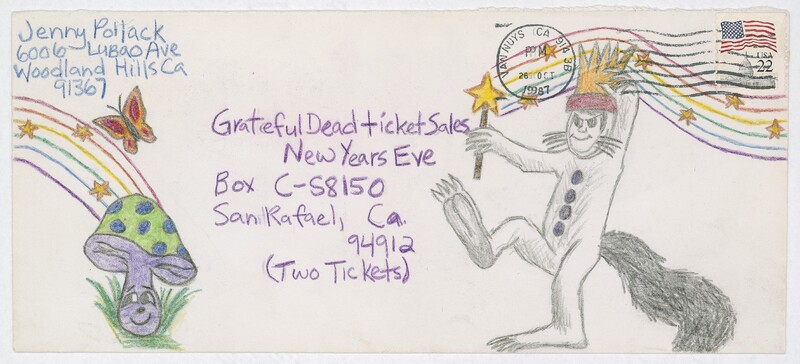 Jenny Pollack
6006 Lubao Ave
Woodland Hills Ca
91367
VAN NUYS CA 913
PM
26 OCT
1987
USA
22
Grateful Dead ticket Sales
New Years Eve
Box C-S8150
San Rafael, Ca.
94912
(Two Tickets)